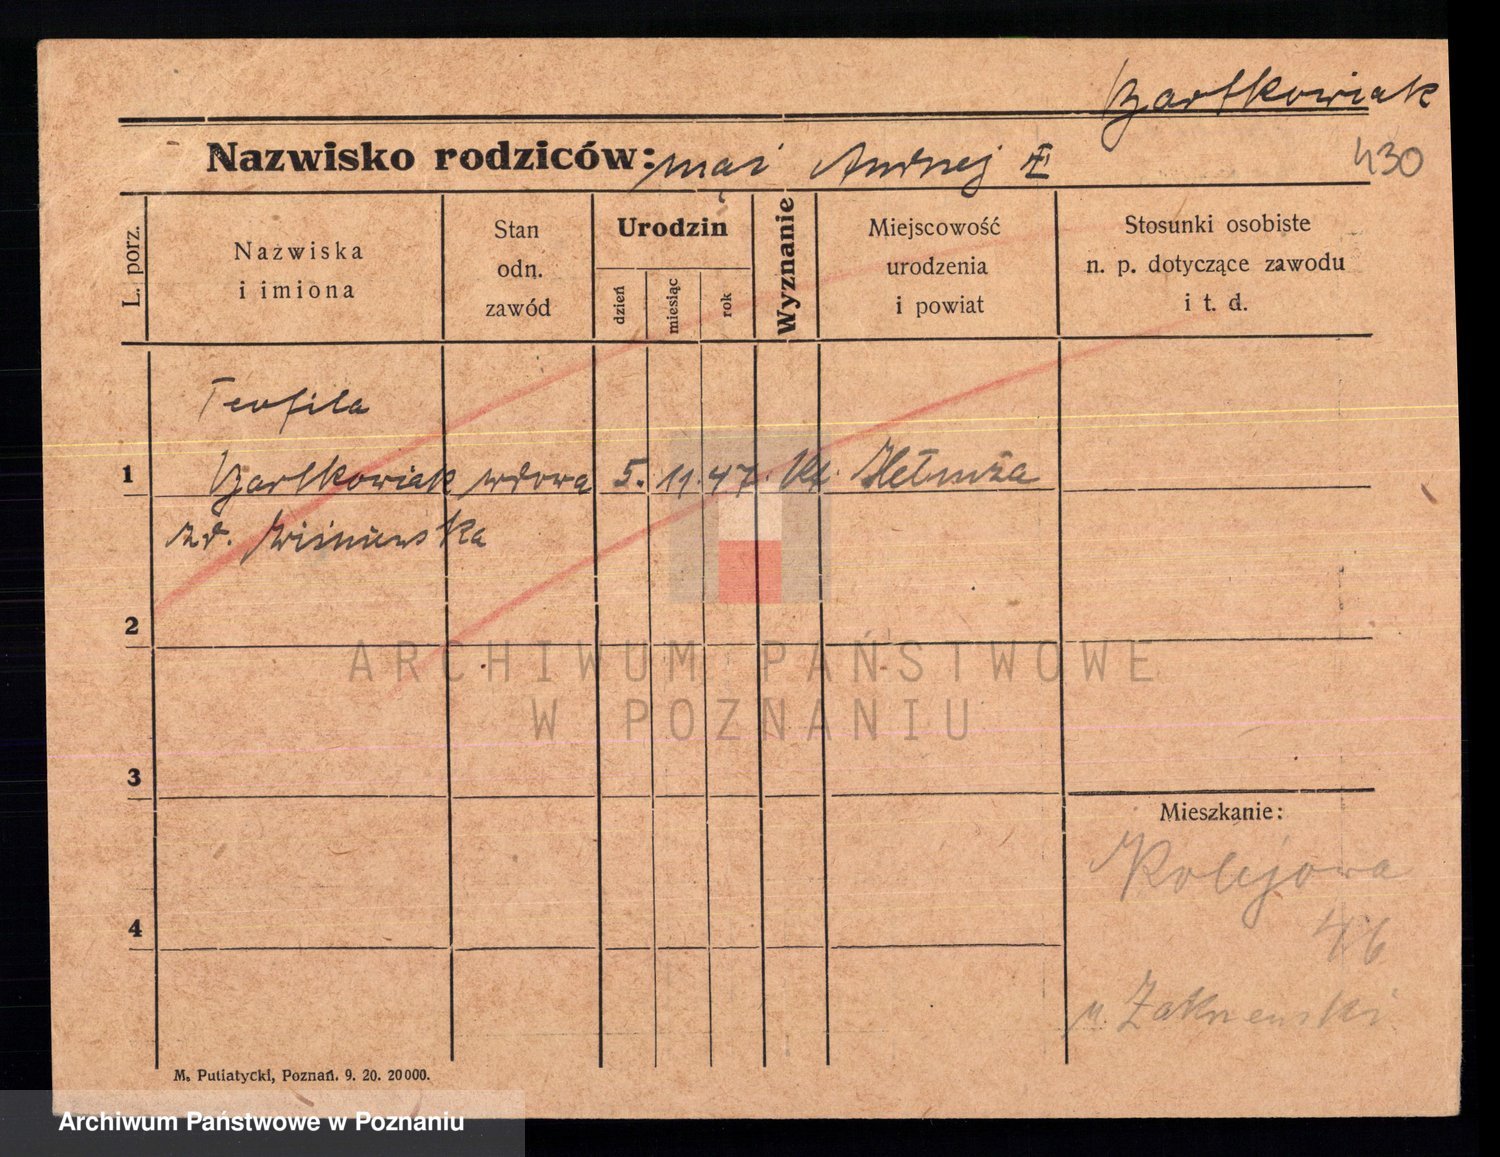 Bartkowiak
Nazwisko rodziców: mąż Andrzej
430
L. porz.
Nazwiska
i imiona
Stan
odn.
zawód
Urodzin
dzień
miesiąc
rok
Wyznanie
Miejscowość
urodzenia
i powiat
Stosunki osobiste
n. p. dotyczące zawodu
i t. d.
Teofila
1 Bartkowiak wdowa 5. 11. 47. kt.
zd. Wiśniewska
2
ARCHIWUM PAŃSTWOWE
W POZNANIU
3
Mieszkanie:
Kolejowa
4
46
u.
M. Putiatycki, Poznań. 9. 20. 20000.
Archiwum Państwowe w Poznaniu